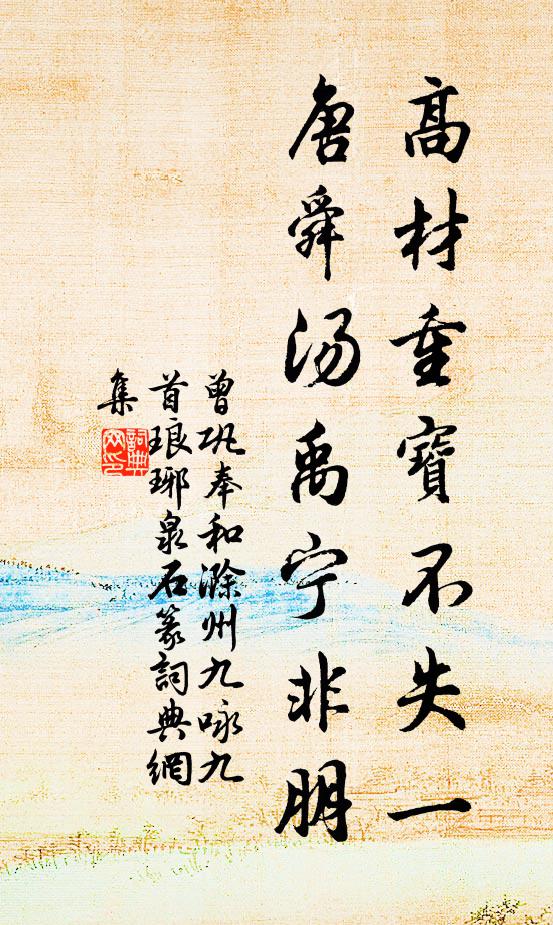 高材重寶不失一
唐舜汤禹宁非明
曾巩奉和滁州九咏九
首琅琊泉石篆詞典網
集
詞典
网印